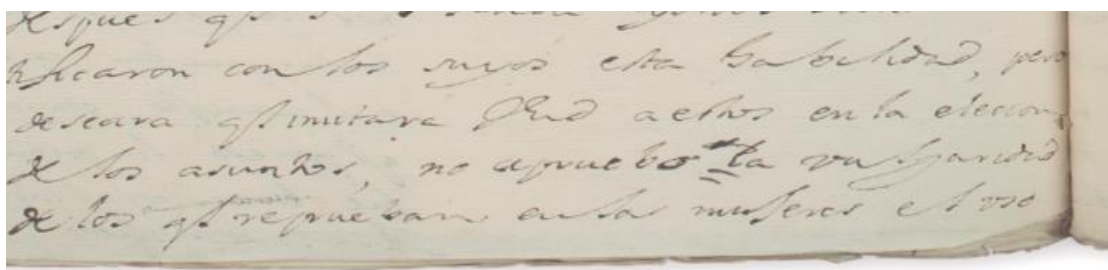 despues qe
tificaron con los suyos esta habelidad, pero
deseara qe imitara Vmd a estos en la eleccion
de los asuntos, no apruebo la vulgaridad
de los qe reprueban en las mujeres el uso